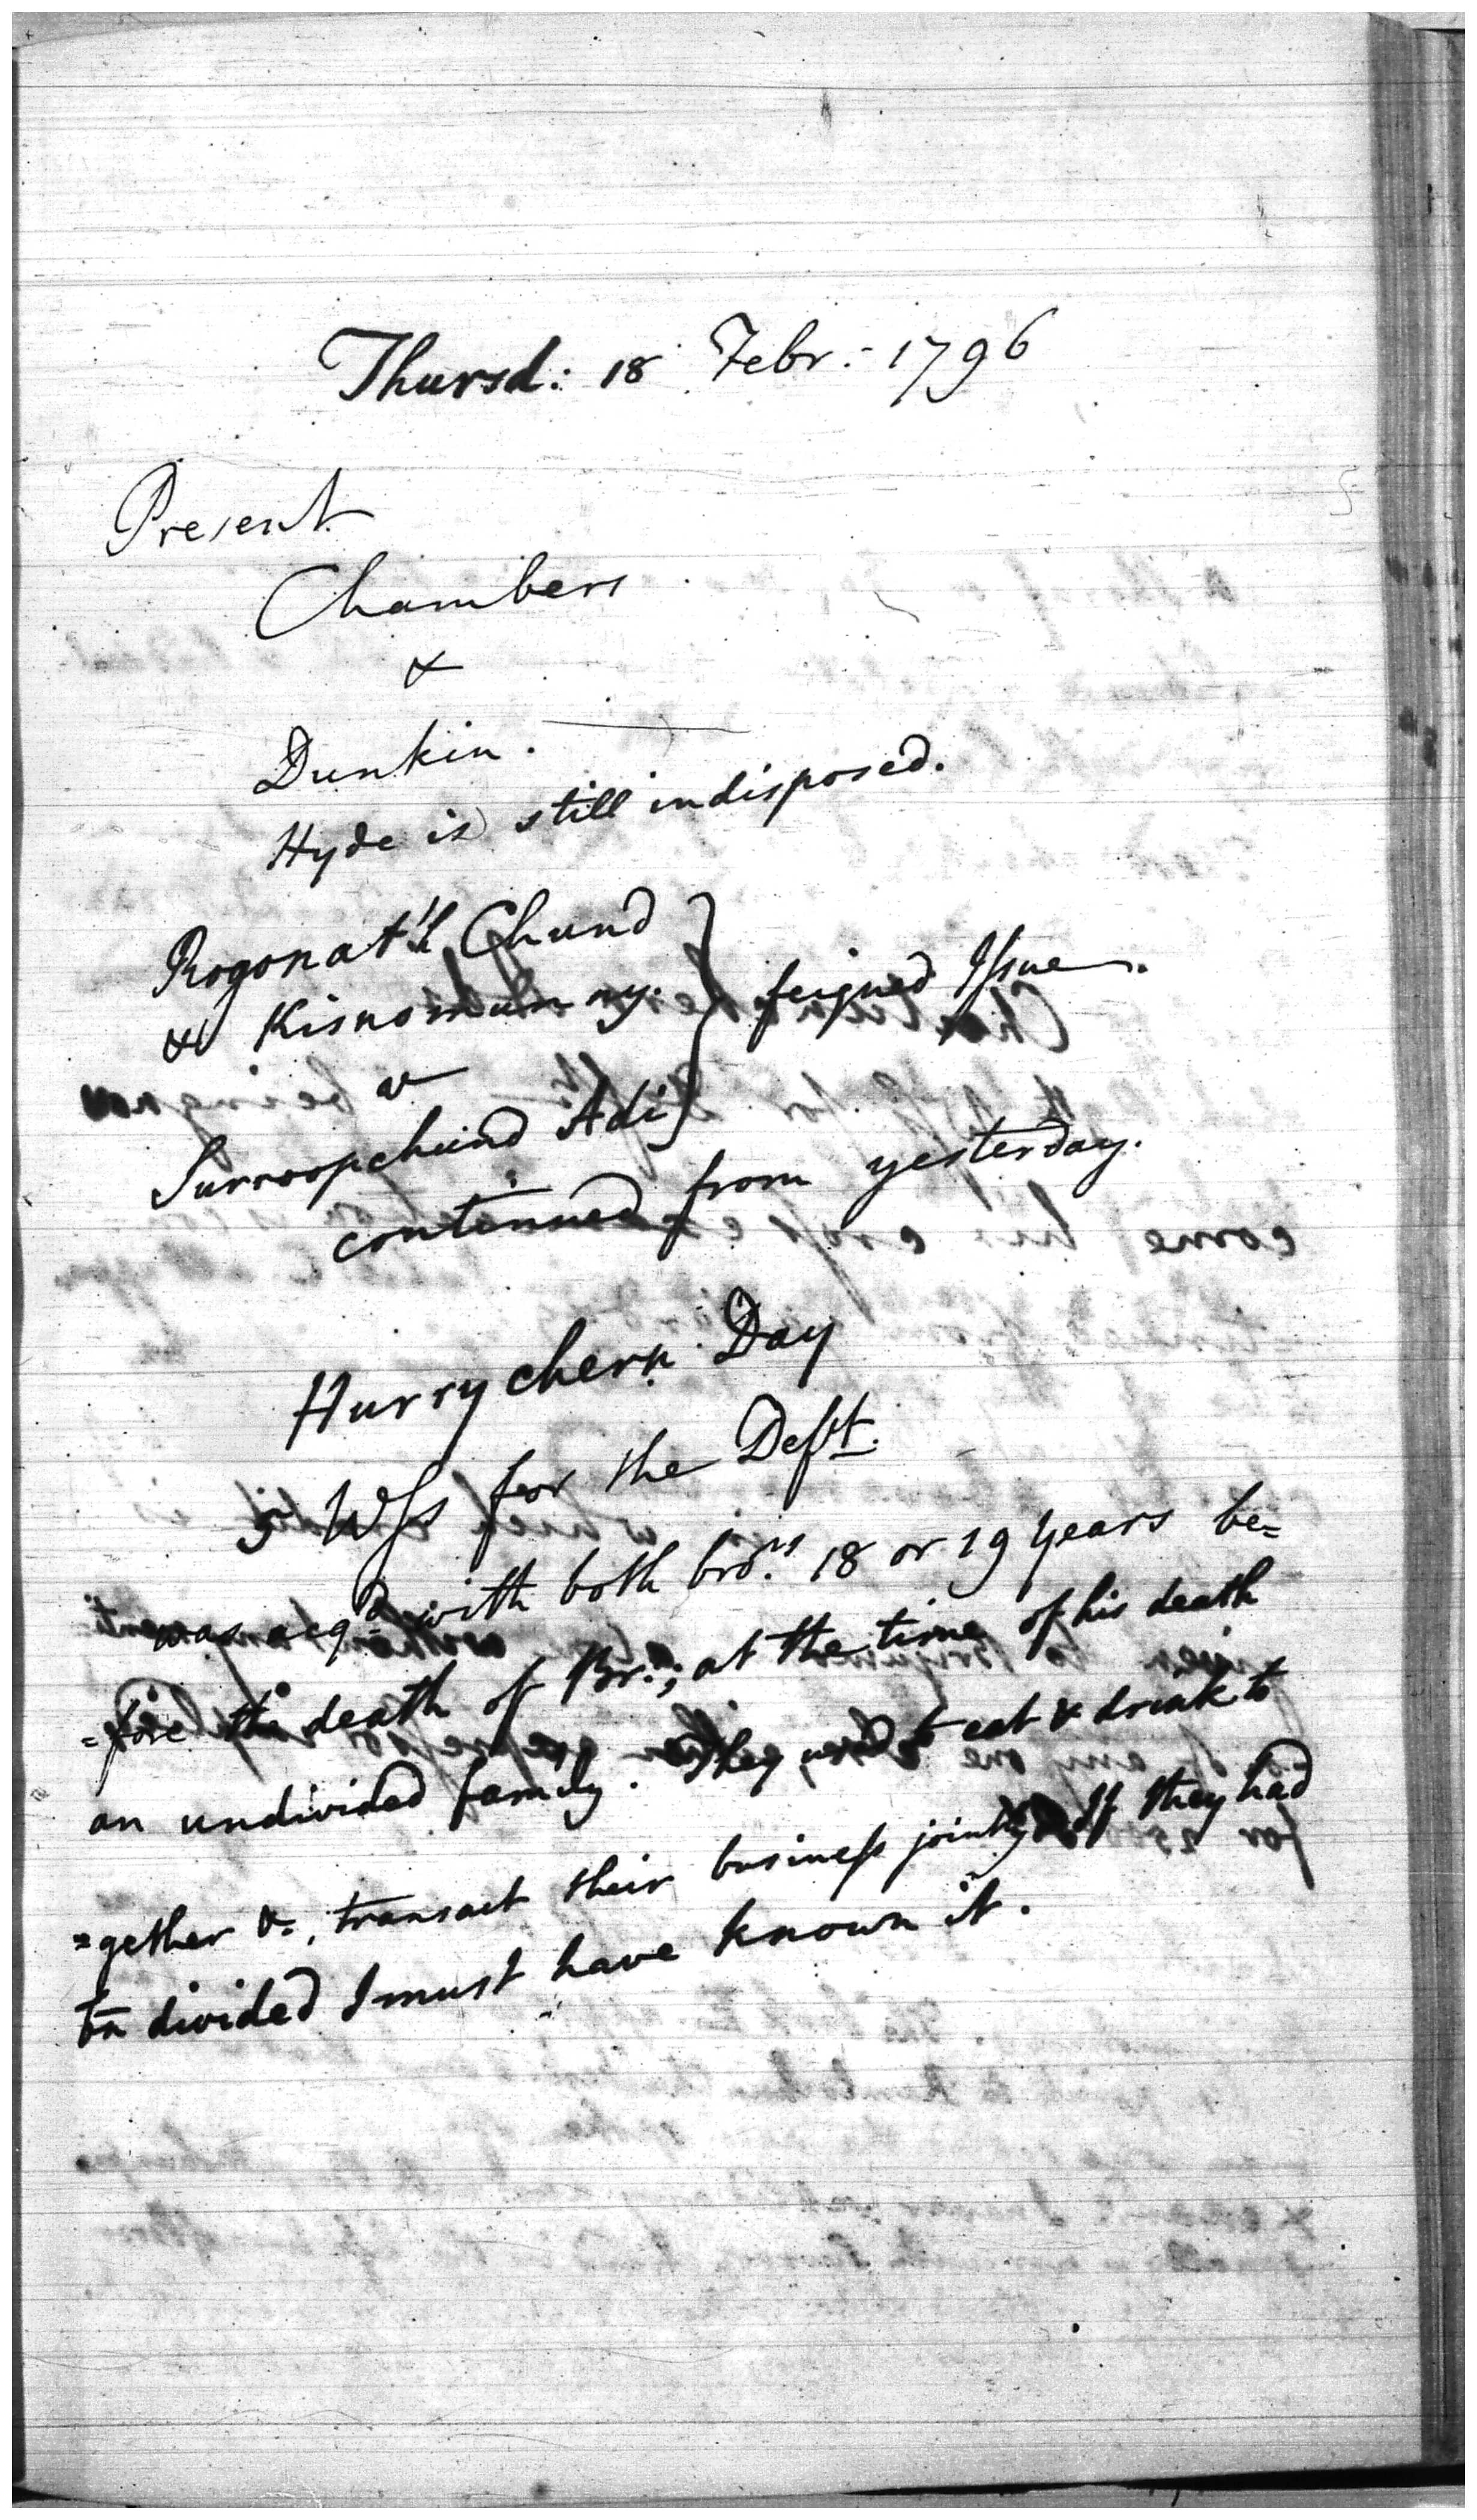 Thursd: 18 Febr:- 1796
Present
Chambers
&
Dunkin.
Hyde is still indisposed.
Rogonat'h Chund
& Kisnomunny.
v
Surroopchund Adi
feigned Issue.
continued from yesterday.
Hurrychern Day
5 Wss for the Deft.
was acqd. with both bro.rs 18 or 19 years be=
=fore the death of Br.; at the time of his death
an undivided family. They used to eat & drink to
=gether &c, transact their business jointly If they had
divided I must have known it.